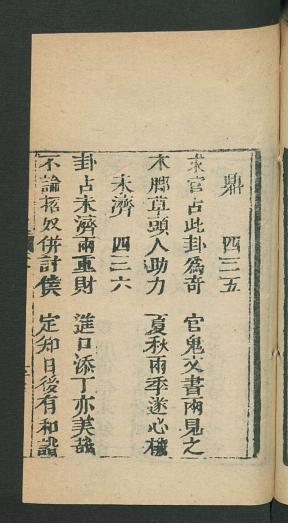 鼎 四三五
求官占此卦為奇 官鬼文書兩見之
木郷草頭人助力 夏秋兩季遂心機
未濟 四三六
卦占未濟兩重財 進口添丁亦美哉
不論招奴併討僕 定知日後有和諧